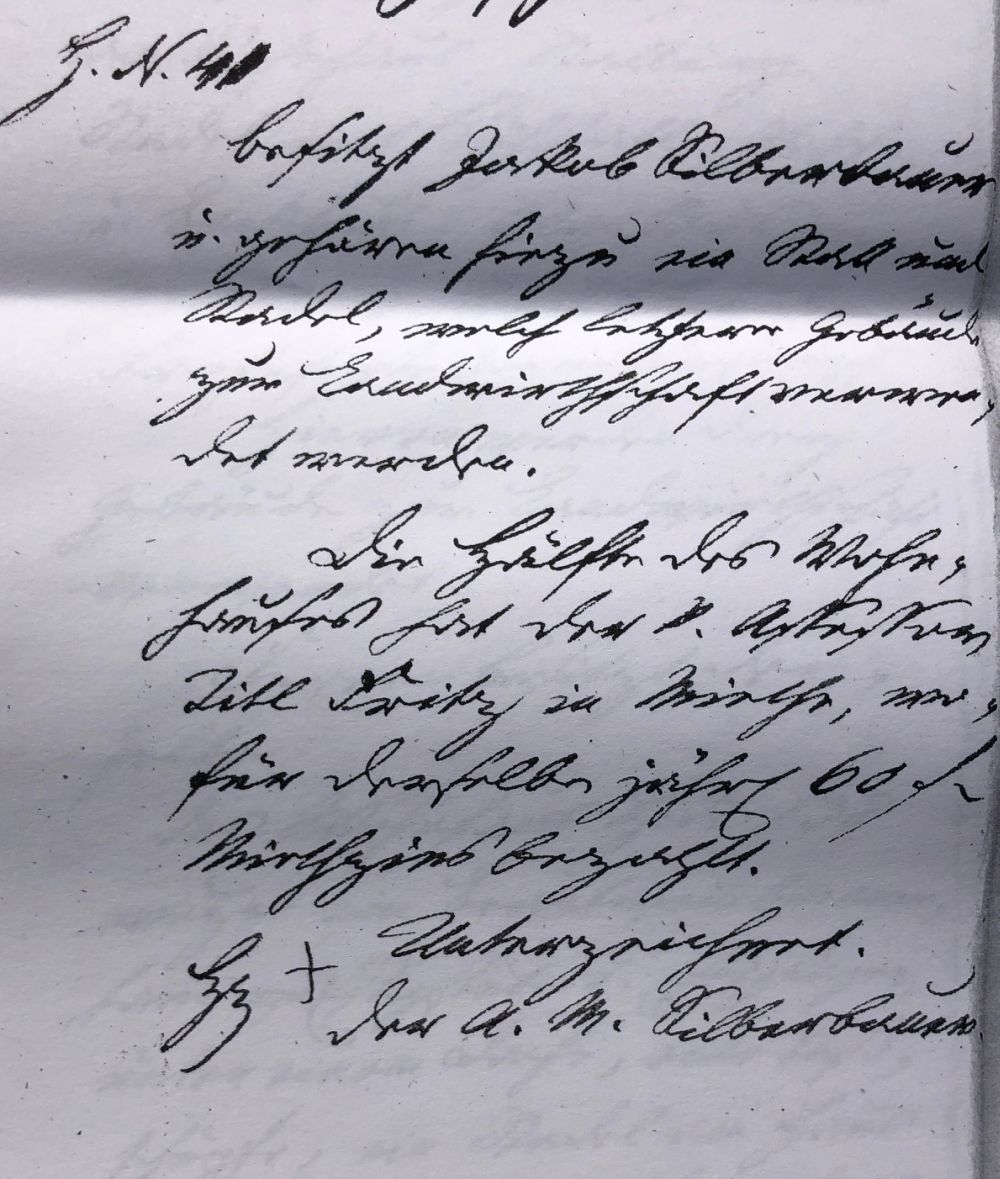 H. N. 41
besitzt Jakob Silberbauer
u. gehören hiezu ein Stall und
Stadel, welch letztere Gebäude
zur Landwirthschaft verwen,
det werden.
Die Hälfte des Wohn,
hauses hat der k. Assessor
Titl Fritz in Miethe, wo,
für derselbe jährl 60 f
Miethzins bezahlt.
Hz + Unterzeichnet.
der A. M. Silberbauer